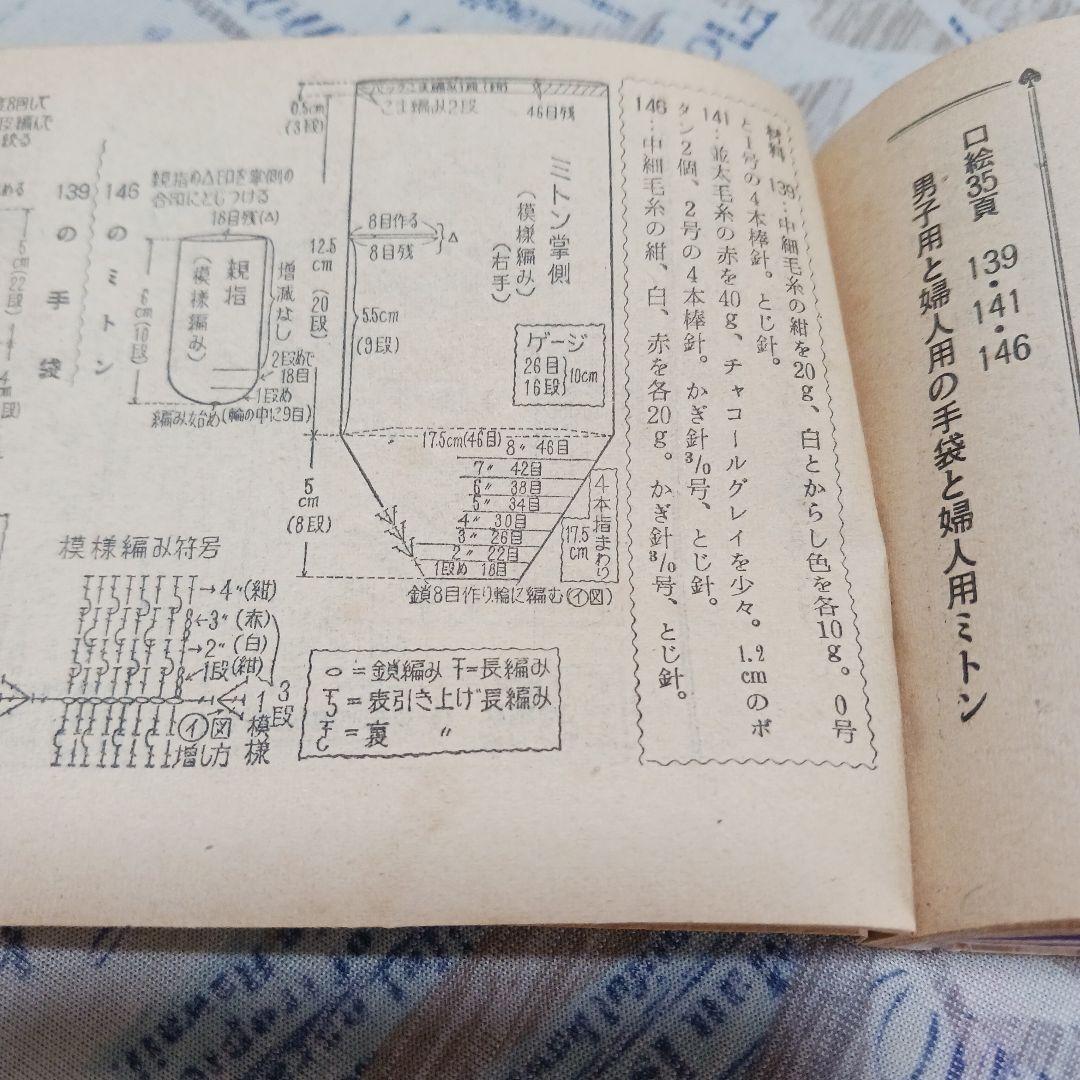 口絵35頁 139・141・146
男子用と婦人用の手袋と婦人用ミトン
材料 139…中細毛糸の紺を20g、白とからし色を各10g。0号
と1号の4本棒針。とじ針。
141…並太毛糸の赤を40g、チャコールグレイを少々。1.2cmのボ
タン2個、2号の4本棒針。かぎ針3/0号、とじ針。
146…中細毛糸の紺、白、赤を各20g。かぎ針3/0号、とじ針。
バックこま編み1段(紺)
こま編み2段
46目残
0.5cm
(3段)
ミトン掌側
(模様編み)
(右手)
8目作る
8目残
△
12.5
cm
(20
段)
5.5cm
(9段)
ゲージ
26目
16段
10cm
17.5cm(46目)
8〃 46目
7〃 42目
6〃 38目
5〃 34目
4〃 30目
3〃 26目
2〃 22目
1段め 18目
5
cm
(8段)
4本指まわり
17.5
cm
鎖8目作り輪に編む(イ図)
146のミトン
親指の△印を掌側の
合印にとじつける
18目残(△)
親指
(模様編み)
増減なし
6cm(10段)
2段めで
18目
1段め
編み始め(輪の中に9目)
139の手袋
5cm(22段)
4cm
段)
8回して
段編んで
絞る
める
模様編み符号
4〃(紺)
3〃(赤)
2〃(白)
1段(紺)
3段
1模様
イ図
増し方
=鎖編み
=長編み
=表引き上げ長編み
=裏 〃